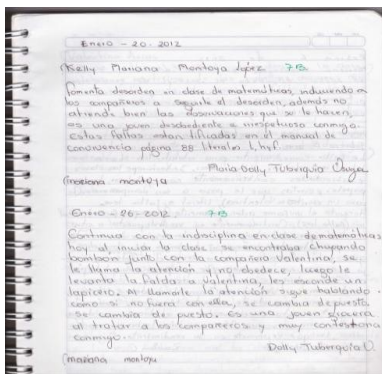 Enero - 20. 2012
Kelly Mariana Montoya López 7B
fomenta desorden en clase de matemáticas, induciendo a
los compañeros a seguirle el desorden, además no
atiende bien las observaciones que se le hacen,
es una joven desobediente e irrespetuosa conmigo.
Estas faltas están tificadas en el manual de
convivencia página 28 literales
María Dolly Tuberquia
Mariana montoya
Enero - 26 - 2012 7B
Continua con la indisciplina en clase de matemáticas
hoy al iniciar la clase se encontraba chupando
bombon junto con la compañera Valentina, se
le llama la atención y no obedece, luego le
levanta la falda a valentina, les esconde un
lapicero. Al llamarle la atención sigue hablando
como si no fuera con ella, se cambia de puesto
se cambia de puesto. Es una joven grosera
al tratar a los compañeros y muy contestona
conmigo.
Dolly Tuberquia
mariana montoya